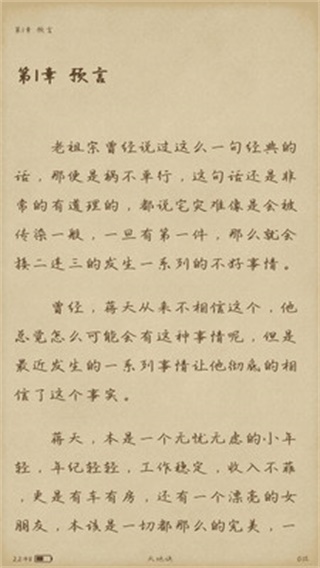 第1章 预言
第1章 预言
老祖宗曾经说过这么一句经典的
话，那便是祸不单行，这句话还是非
常的有道理的，都说宅灾难像是会被
传染一般，一旦有第一件，那么就会
接二连三的发生一系列的不好事情。
曾经，蒋天从来不相信这个，他
总觉怎么可能会有这种事情呢，但是
最近发生的一系列事情让他彻底的相
信了这个事实。
蒋天，本是一个无忧无虑的小年
轻，年纪轻轻，工作稳定，收入不菲
，更是有车有房，还有一个漂亮的女
朋友，本该是一切都那么的完美，一
22:48